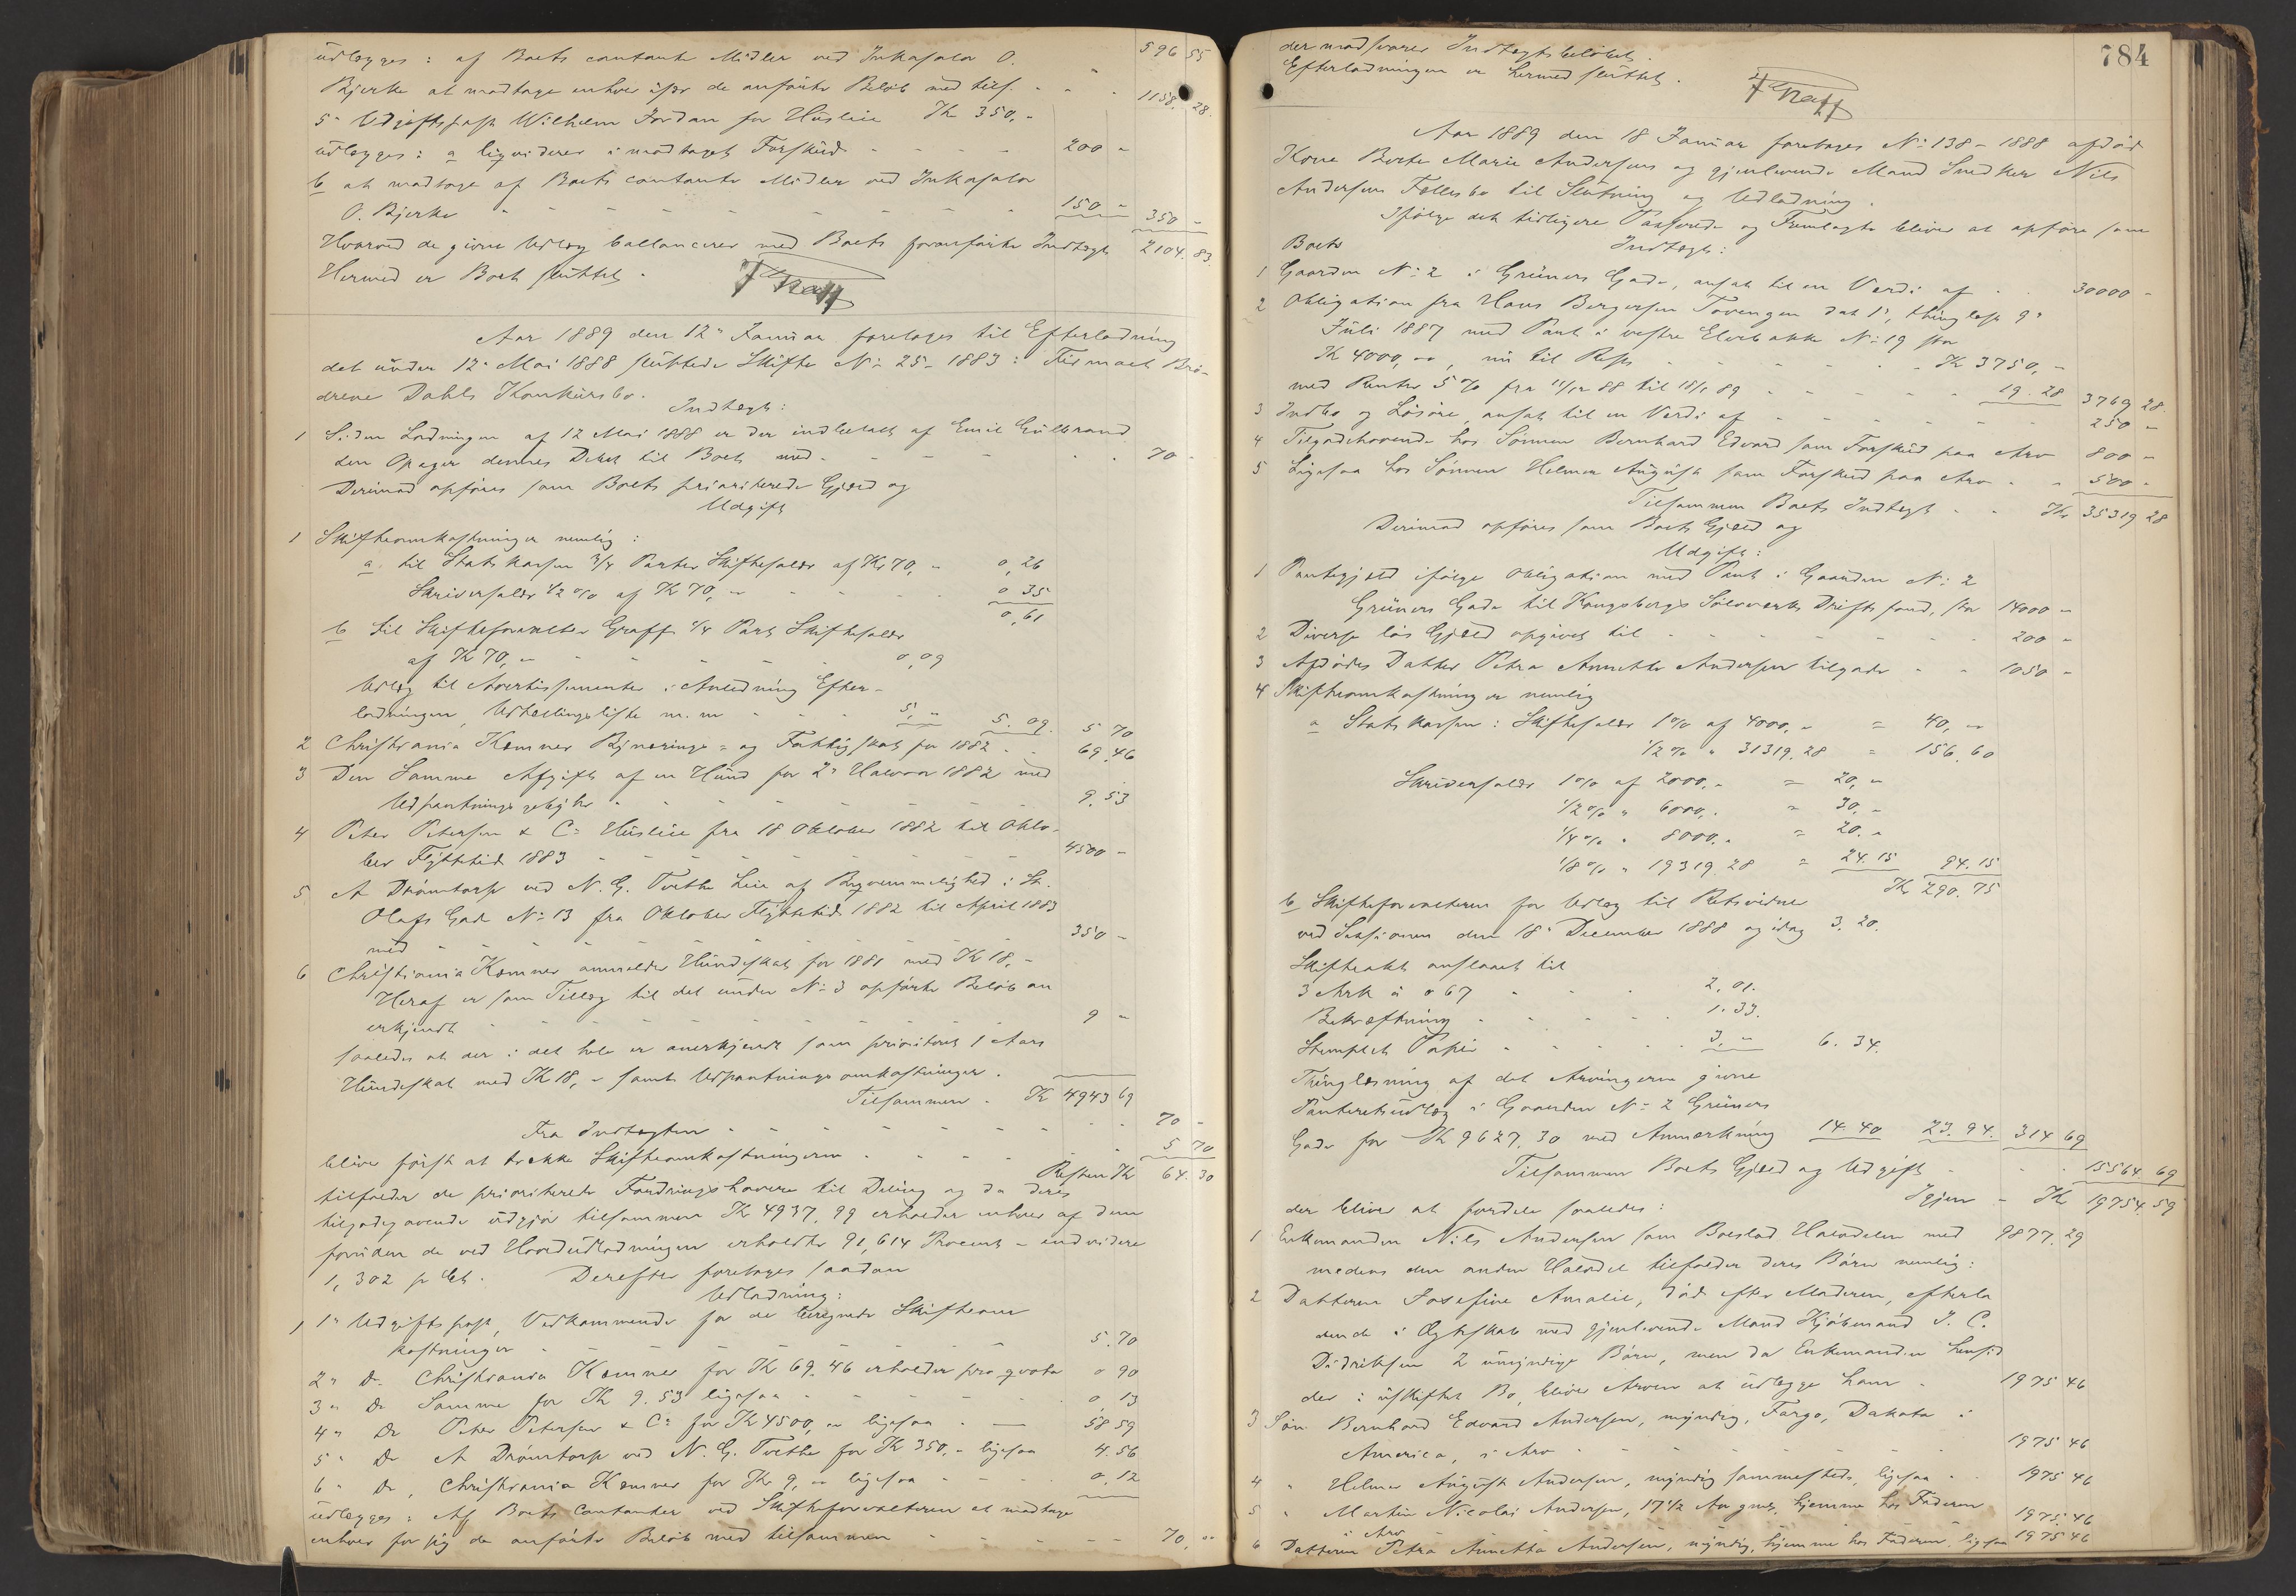 udlægges: af Boets contante Midler ved Inkasator O. 596 55
Bjerke at modtage enhver især de anførte Beløb med tils. - - 1158. 28.
5" Udgiftspost Wilhelm Jordan for Husleie Kr 350,-
udlægges: a liqviderer i modtaget Forskud - - - - 200 -
b at modtage af Boets contante Midler ved Inkasator
O. Bjerke - - - - - - - 150 - 350 -
Hvorved de givne Udlæg ballancerer med Boets foranførte Indtægt 2104. 83.
Hermed er Boet sluttet.
Graff
Aar 1889 den 12" Januar foretoges til Efterlodning
det under 12" Mai 1888 sluttede Skifte No 25-1883: Firmaet Brø-
drene Dahls Konkursbo.
Indtægt:
1 Siden Lodningen af 12 Mai 1888 er der indbetalt af Emil Gulbrand
den Opager dennes Debet til Boet med - - - - 70 -
Derimod opføres som Boets prioriterede Gjæld og
Udgift
1 Skifteomkostninger nemlig:
a. til Statskassen 3/4 Parter Skiftesalær af Kr 70,- 0,26
Skriversalær 1/2 % af Kr 70,- - - - - 0 35
0,61
b til Skifteforvalter Graff 1/4 Part Skiftesalær
af Kr 70,- - - - - 0,09
Udlæg til Avertissementer i Anledning Efter-
lodningen, Udbetalingsliste m.m - - - 5,- 5. 09. 5 70
2 Christiania Kæmner Bynærings- og Fattigskat for 1882 - - 69,46
3 Den Samme Afgift af en Hund for 2" Halvaar 1882 med
Udpantningsgebyhr - - - - - - - 9. 53
4 Peter Petersen & Co Husleie fra 18 Oktober 1882 til Okto-
ber Flyttetid 1883 - - - - - - - 4500 -
5 A Drømtorp ved N. G. Tvethe Leie af Beqvemmelighed i St.
Olafs Gade No 13 fra Oktober Flyttetid 1882 til April 1883
med - - - - - - - - 350 -
6 Christiania Kæmner anmelder Hundeskat for 1881 med Kr 18,-
Heraf er som Tillæg til det under No 3 opførte Beløb an
erkjendt - - - - - - - - 9 -
saaledes at der i det hele er anerkjendt som prioriteret 1 Aars
Hundeskat med Kr 18,- samt Udpantningsomkostninger.
Tilsammen - Kr 4943 69
Fra Indtægten - - - - - - - - 70 -
bliver først at trække Skifteomkostningerne - - - - 5 70
Resten Kr 64. 30
tilfalder de prioriterede Fordringshavere til Deling og da deres
tilgodehavende udgjør tilsammen Kr 4937,99 erholder enhver af dem
foruden de ved Hovedudlodningen erholdte 91,614 Procent - endvidere
1,302 p Ct. Derefter foretages saadan
Udlodning:
1 1" Udgiftspost, Vedkommende for de beregnede Skifteom
kostninger - - - - - - - 5. 70
2 " Do Christiania Kæmner for Kr 69. 46 erholder pro qvota 0 90
3 " Do Samme for Kr 9. 53 ligesaa - - - - 0 13
4 " Do Peter Petersen & Co for Kr 4500,- ligesaa - - 58 59
5 " Do A Drømtorp ved N. G. Tvethe for Kr 350,- ligesaa 4. 56
6 " Do, Christiania Kæmner for Kr 9,- ligesaa - - - 0, 12
udlægges: Af Boets Contanter ved Skifteforvalteren at modtage
enhver for sig de anførte Beløb med tilsammen - - - - 70,-
784
der modsvarer Indtægtsbeløbet.
Efterlodningen er hermed sluttet.
Graff
Aar 1889 den 18 Januar foretoges No 138-1888 afdød
Kone Berte Marie Andersens og gjenlevende Mand Snedker Nils
Andersens Fællesbo til Slutning og Udlodning.
Ifølge det tidligere Passerede og Fremlagte bliver at opføre som
Boets Indtægt:
1 Gaarden No 2 i Grüners Gade, ansat til en Verdi af - - 30000 -
2 Obligation fra Hans Bergersen Tovengen dat 1", thinglæst 9"
Juli 1887 med Pant i vestre Elvebakke No 19 stor
Kr 4000,-, nu til Rest - - - - - Kr 3750,-
med Renter 5 % fra 11/12 88 til 18/1 89 - - - - 19. 28 3769 28.
3 Indbo og Løsøre, ansat til en Verdi af - - - - 250 -
4 Tilgodehavende hos Sønnen Bernhard Edvard som Forskud paa Arv 800 -
5 Ligesaa hos Sønnen Helmer August som Forskud paa Arv - - 500 -
Tilsammen Boets Indtægt - - Kr 35319 28
Derimod opføres som Boets Gjæld og
Udgift:
1 Pantegjæld ifølge Obligation med Pant i Gaarden No 2
Grüners Gade til Kongsbergs Sølvværks Driftsfond, stor 14000 -
2 Diverse løs Gjæld opgivet til - - - - - 200 -
3 Afdødes Datter Petra Annette Andersen tilgode - - 1050 -
4 Skifteomkostninger nemlig
a Statskassen: Skiftesalær 1 % af 4000,- = 40,-
1/2 % " 31319,28 = 156. 60
Skriversalær 1 % af 2000,- = 20,-
1/2 % " 6000,- = 30,-
1/4 % " 8000,- = 20,-
1/8 % " 19319 28 = 24. 15 94. 15
Kr 290. 75
b Skifteforvalteren for Udlæg til Retsvidne
ved Sessionen den 18" December 1888 og idag 3. 20.
Skifteakt anslaaet til
3 Ark à 0 67 - - - 2. 01.
Bekræftning - - - - 1. 33.
Stemplet Papir - - - - 3,- 6. 34.
Thinglæsning af det Arvingerne givne
Panteretsudlæg i Gaarden No 2 Grüners
Gade for Kr 9627. 30 med Anmærkning 14. 40 23. 94. 314 69
Tilsammen Boets Gjæld og Udgift - - - 15564. 69
Igjen - Kr 19754. 59
der bliver at fordele saaledes:
1 Enkemanden Nils Andersen som Boeslod Halvdelen med 9877. 29
medens den anden Halvdel tilfalder deres Børn nemlig:
2 Datteren Josefine Amalie, død efter Moderen, efterla
dende i Ægteskab med gjenlevende Mand Kjøbmand J. C.
Didriksen 2 umyndige Børn, men da Enkemanden hensid
der i uskiftet Bo, bliver Arven at udlægge ham - 1975 46
3 Søn Bernhard Edvard Andersen, myndig, Fargo, Dakota i
America, i Arv - - - - - - - 1975 46
4 " Helmer August Andersen, myndig sammesteds, ligesaa - 1975 46
5 " Martin Nicolai Andersen, 17 1/2 Aar gml, hjemme hos Faderen
i Arv 1975. 46
6 Datteren Petra Annetta Andersen, myndig, hjemme hos Faderen, ligesaa 1975 46